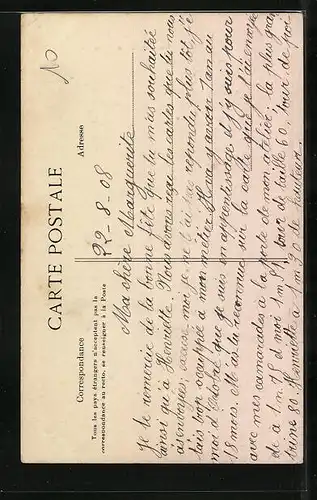 CARTE POSTALE
Correspondance
Tous les pays étrangers n'acceptent pas la
correspondance au recto, se renseigner à la Poste
Adresse
22-8-08
Ma chère Marguerite
Je te remercie de la bonne fête que tu m'as souhaitée
ainsi qu'à Henriette. Nous avons reçu les cartes que tu nous
as envoyées, excuse moi je ne t'ai pas répondu plus tôt j'é
tais trop occupée à mon métier. Il y aura 1 an au
moi d'Octobre que je suis en apprentissage j'y suis pour
18 mois. M'as-tu reconnue sur la carte que je t'ai envoyée
avec mes camarades à la porte de mon atelier. la plus gran
de à 1m 75 et moi 1m 51 tour de taille 60, tour de poi
trine 80. Henriette à 1m 30 de hauteur.